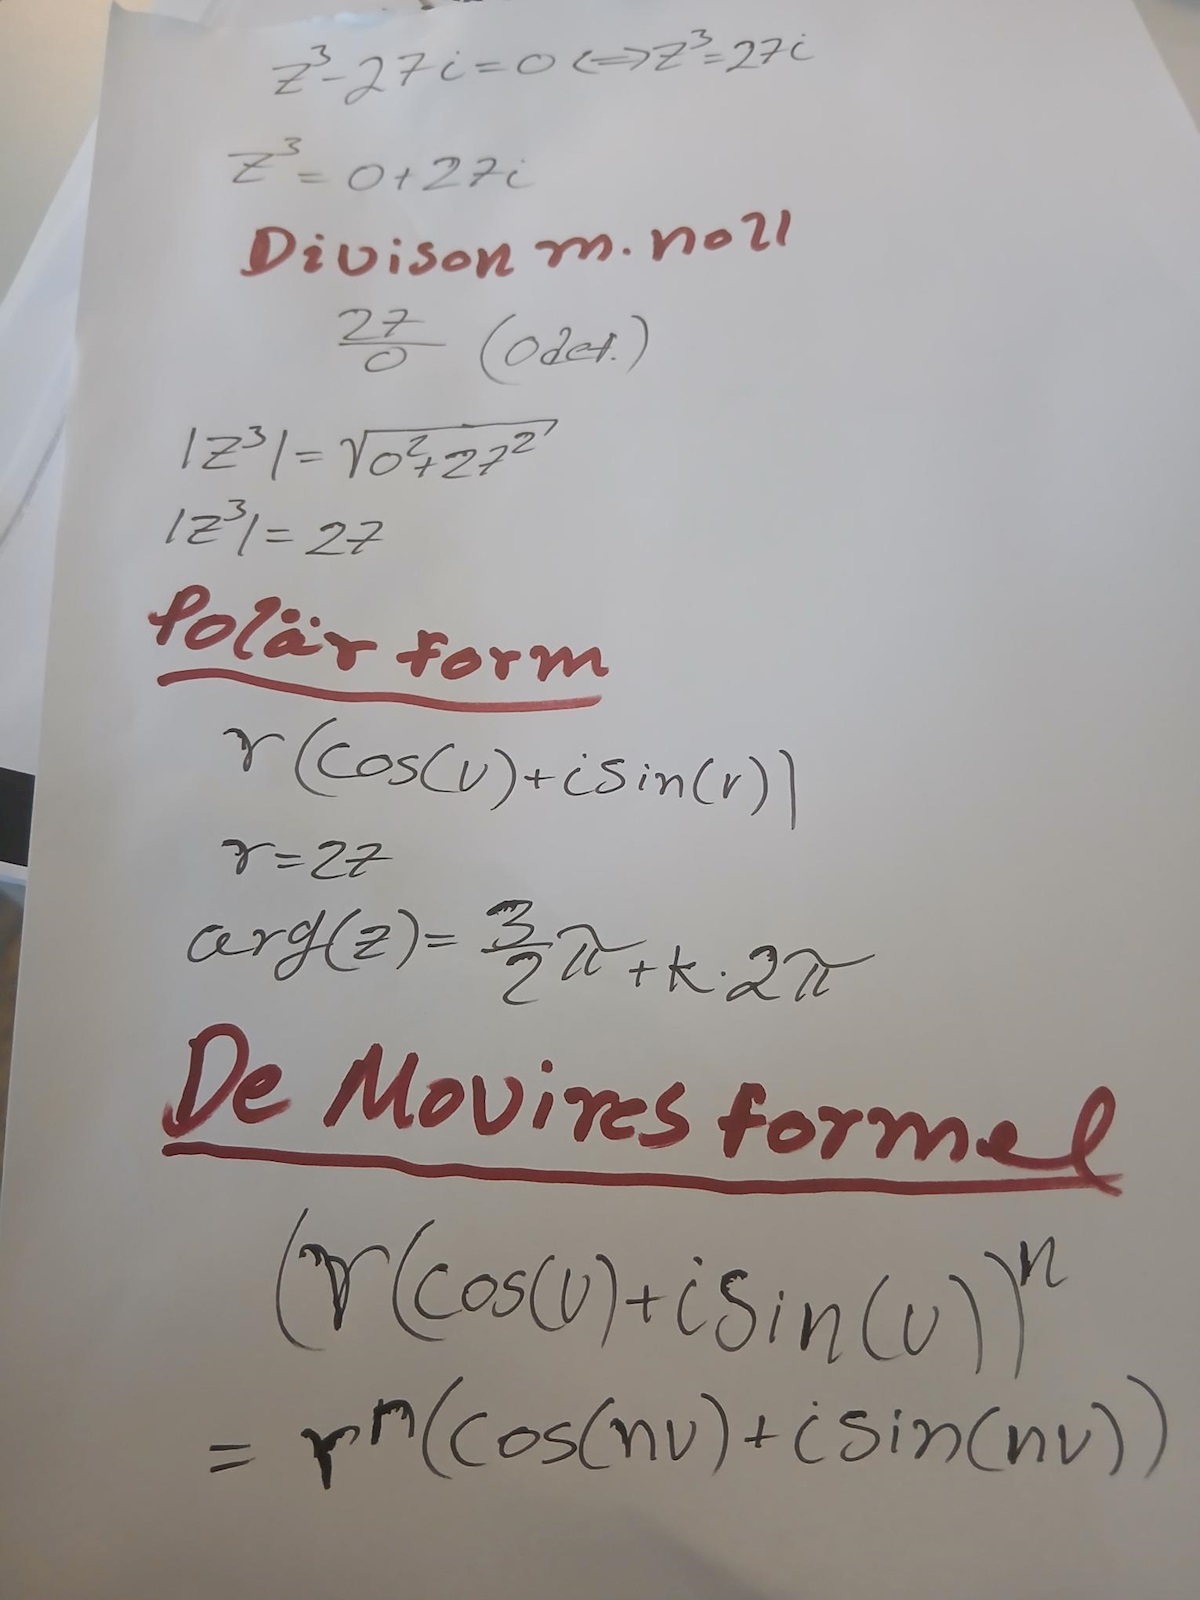 z³-27i=0 <=> z³=27i
z³=0+27i
Divison m. noll
27/0 (Odef.)
|z³|=√0²+27²
|z³|=27
Polär form
r(cos(v)+isin(v))
r=27
arg(z)=3/2π+k·2π
De Movires formel
(r(cos(v)+isin(v))ⁿ
=rⁿ(cos(nv)+isin(nv))